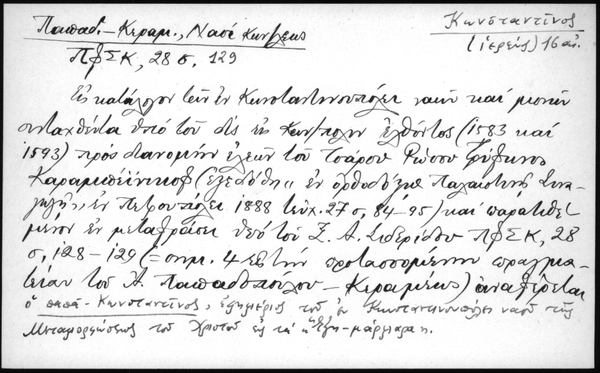 Παπαδ.-Κεραμ., Ναοί Κων/λεως
Κωνσταντῖνος
ΠΦΣΚ, 28 σ. 129
(ἱερεύς) 16 αἰ.
Εἰς κατάλογον τῶν ἐν Κωνσταντινουπόλει ναῶν καί μονῶν
συνταχθέντα ὑπό τοῦ δίς εἰς Κων/πολιν ἐλθόντος (1583 καί
1593) πρός διανομήν ἐλεῶν τοῦ Τσάρου Ρώσου Τρύφωνος
Καραμπέϊνικοφ (ἐξεδόθη ἐν Ὀρθοδόξῳ Παλαιστινῇ Συλ-
λογῇ, ἐν Πετρουπόλει 1888 τεῦχ. 27 σ, 84-95) καί παρατιθέ
μενον ἐν μεταφράσει ὑπό τοῦ Ξ. Α. Σιδερίδου ΠΦΣΚ, 28
σ, 128-129 (= σημ. 4 εἰς τήν προτασσομένην πραγμα-
τείαν τοῦ Ἀ. Παπαδοπούλου-Κεραμέως) ἀναφέρεται
ὁ παπᾶ-Κωνσταντῖνος, ἐφημέριος τοῦ ἐν Κωνσταντινουπόλει ναοῦ τῆς
Μεταμορφώσεως τοῦ Χριστοῦ εἰς τά "Ἕξη-μάρμαρα".